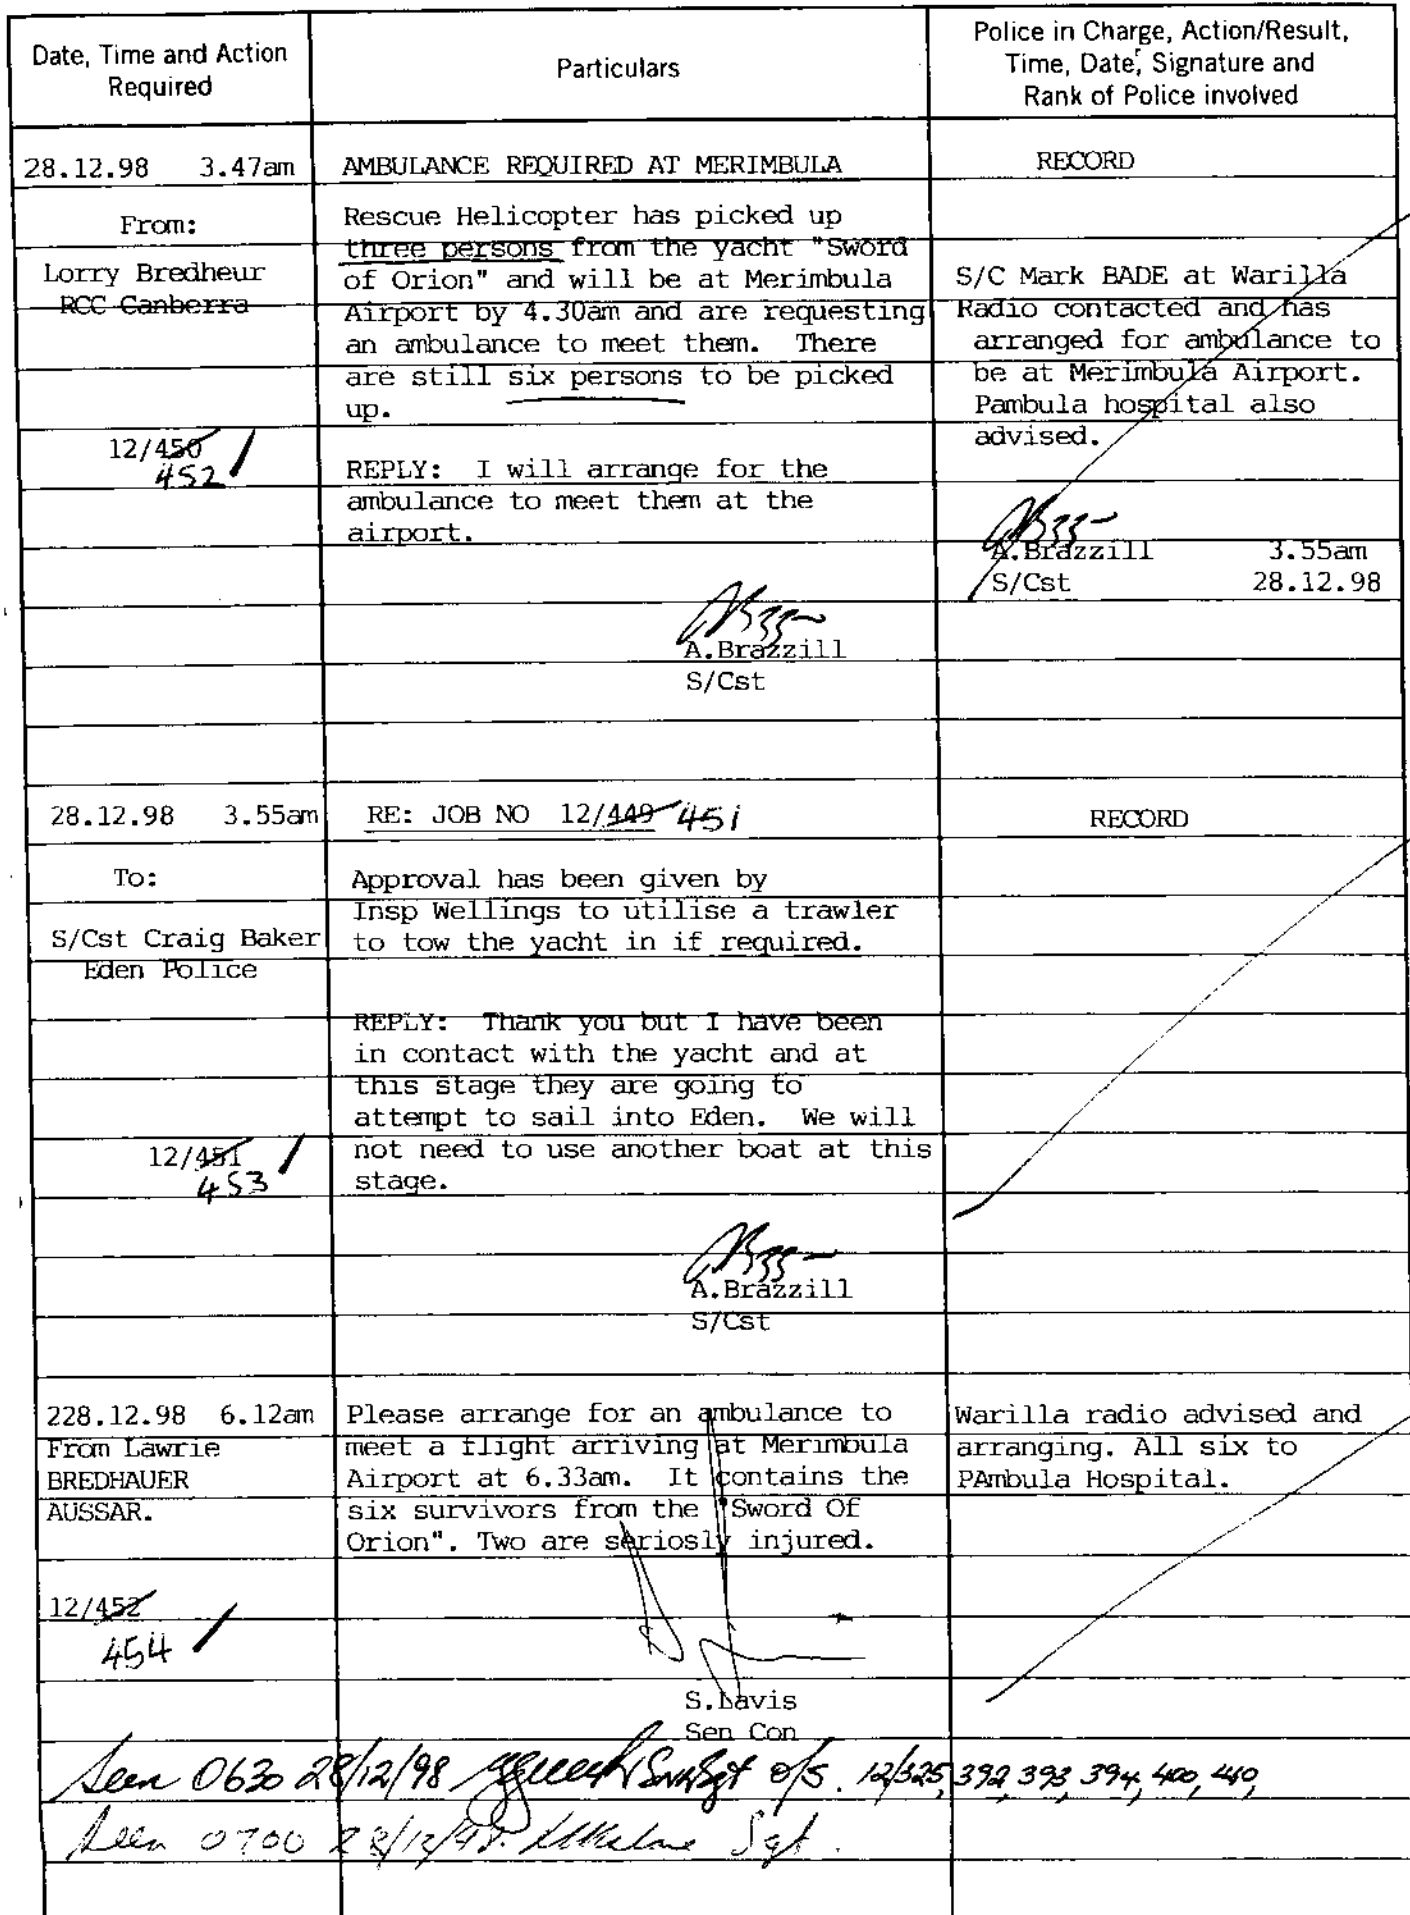 Date, Time and Action
Required
Particulars
Police in Charge, Action/Result,
Time, Date, Signature and
Rank of Police involved
28.12.98 3.47am
From:
Lorry Bredheur
RCC Canberra
12/450
452
AMBULANCE REQUIRED AT MERIMBULA
Rescue Helicopter has picked up
three persons from the yacht "Sword
of Orion" and will be at Merimbula
Airport by 4.30am and are requesting
an ambulance to meet them. There
are still six persons to be picked
up.
REPLY: I will arrange for the
ambulance to meet them at the
airport.
A.Brazzill
S/Cst
RECORD
S/C Mark BADE at Warilla
Radio contacted and has
arranged for ambulance to
be at Merimbula Airport.
Pambula hospital also
advised.
A.Brazzill 3.55am
S/Cst 28.12.98
28.12.98 3.55am
To:
S/Cst Craig Baker
Eden Police
12/451
453
RE: JOB NO 12/449 451
Approval has been given by
Insp Wellings to utilise a trawler
to tow the yacht in if required.
REPLY: Thank you but I have been
in contact with the yacht and at
this stage they are going to
attempt to sail into Eden. We will
not need to use another boat at this
stage.
A.Brazzill
S/Cst
RECORD
228.12.98 6.12am
From Lawrie
BREDHAUER
AUSSAR.
12/452
454
Please arrange for an ambulance to
meet a flight arriving at Merimbula
Airport at 6.33am. It contains the
six survivors from the "Sword Of
Orion". Two are seriosly injured.
S.Davis
Sen Con
Warilla radio advised and
arranging. All six to
PAmbula Hospital.
Seen 0630 28/12/98 Sgt o/s. 12/325, 392, 393, 394, 400, 440,
Seen 0700 28/12/98. Sgt.